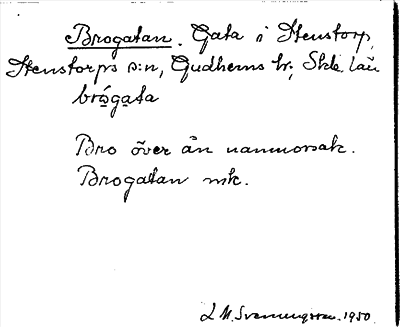 Brogatan. Gata i Stenstorp,
Stenstorps s:n, Gudhems hr, Skbg. län
brógata
Bro över ån namnorsak.
Brogatan nsk.
L M. Svenungsson. 1950.